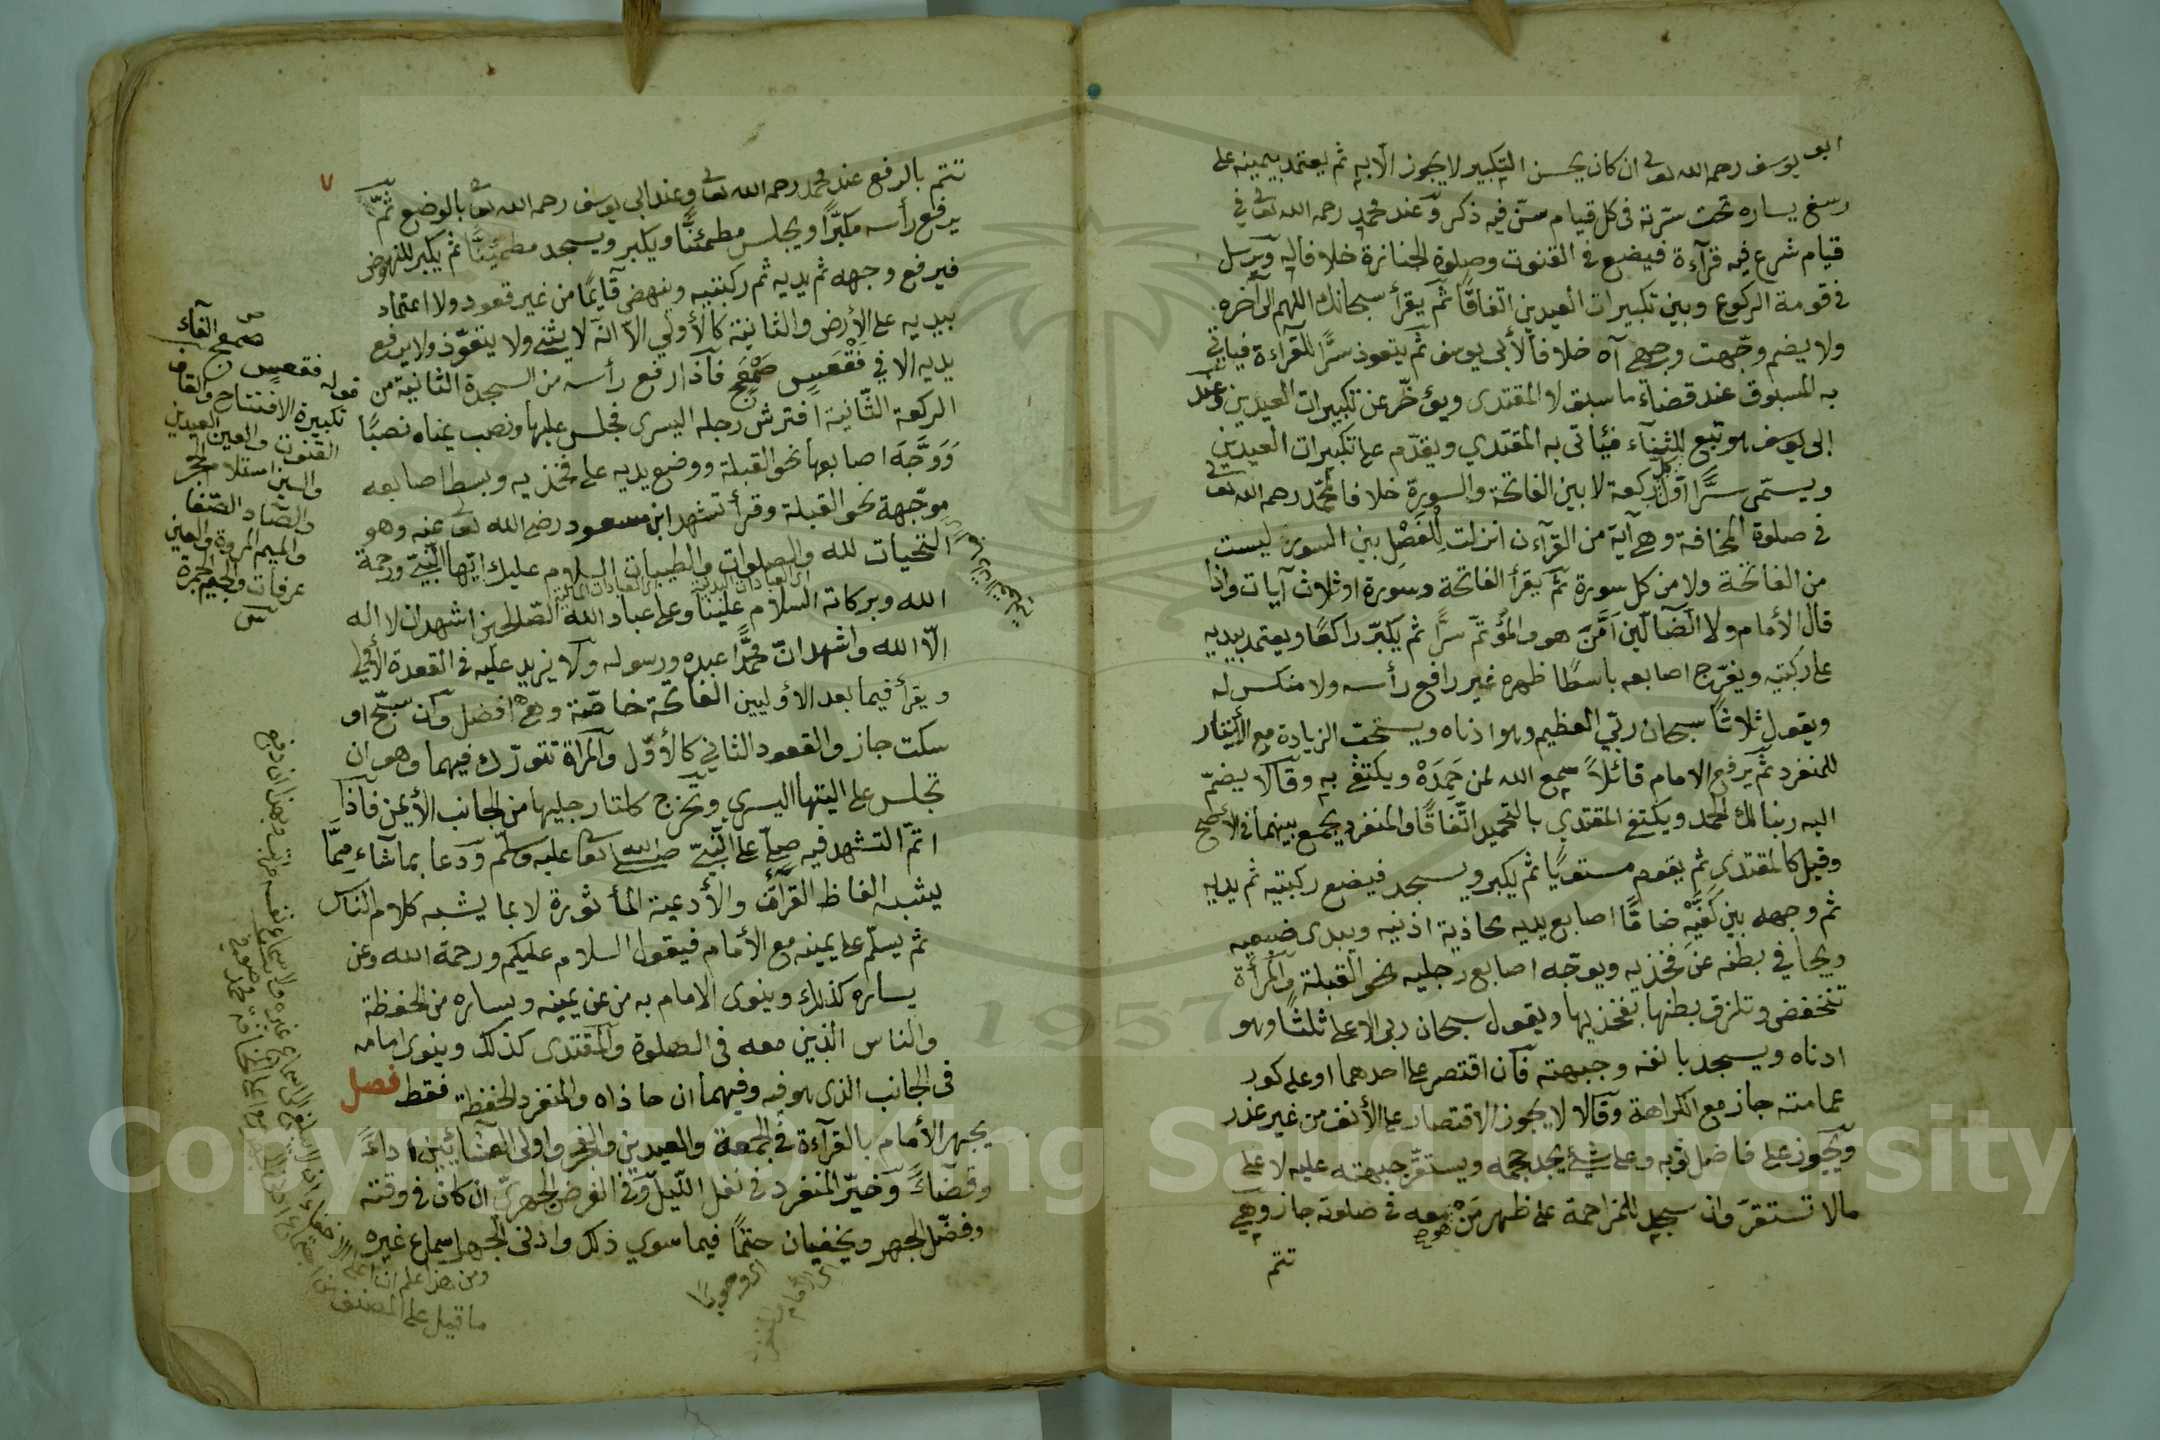 ابو يوسف رحمه الله تعالى ان كان يحسن التكبير لا يجوز الّا به ثم يعتمد بيمينه على
رسغ يساره تحت سرّته فى كل قيام سنّ فيه ذكر وعند محمد رحمه الله تعالى في
قيام شرع فيه قرآءة فيضع في القنوت وصلوة الجنازة خلافا له ويرسل
في قومة الركوع وبين تكبيرات العيدين اتفاقًا ثم يقرأ سبحانك اللهم الى آخره
ولا يضم وجّهت وجهي آه خلافا لأبى يوسف ثم يتعوذ سرًّا للقرآءة فيأتي
به المسبوق عند قضاء ما سبق لا المقتدى ويؤخّر عن تكبيرات العيدين وعند
ابى يوسف هو تبع للثناء فيأتى به المقتدي ويقدّم على تكبيرات العيدين
ويسمّى سرًّا اوّل كل ركعة لا بين الفاتحة والسورة خلافا لمحمّد رحمه الله تعالى
في صلوة المخافتة وهى آية من القرآءن انزلت للفَصْلِ بين السور ليست
من الفاتحة ولا من كل سورة ثم يقرأ الفاتحة وسورة او ثلاث آيات واذا
قال الأمام ولا الضآلّين اَمَّنَ هو والمؤتمّ سرًّا ثم يكبّر راكعًا ويعتمد بيديه
على ركبتيه ويفرّج اصابعه باسطًا ظهره غير رافع رأسه ولا منكس له
ويقول ثلاثًا سبحان ربّي العظيم وهو ادناه ويستحبّ الزيادة مع الأيتار
للمنفرد ثم يرفع الامام قائلاً سمع الله لمن حَمِدَهْ ويكتفى به وقالا يضمّ
اليه ربنا لك الحمد ويكتفى المقتدي بالتحميد اتّفاقًا والمنفرد يجمع بينهما في الأصح
وقيل كالمقتدى ثم يقوم مستويًا ثم يكبر ويسجد فيضع ركبتيه ثم يديه
ثم وجهه بين كَفَّيْه ضامًّا اصابع يديه محاذية اذنيه ويبدى ضبعيه
ويجافي بطنه عن فخذيه ويوجّه اصابع رجليه نحو القبلة والمرأة
تنخفض وتلزق بطنها بفخذيها ويقول سبحان ربى الاعلى ثلثًا وهو
ادناه ويسجد بانفه وجبهته فان اقتصر على احدهما او على كور
عمامته جاز مع الكراهة وقالا لا يجوز الاقتصار على الأنف من غير عذر
ويجوز على فاضل ثوبه وعلى شئ يجد حجمه ويستقرّ جبهته عليه لا على
ما لا تستقرّ وان سجد للمزاحمة على ظهر مَنْ هو معه في صلوته جاز وهى
تتم
٧
تتم بالرفع عند محمد رحمه الله تعالى وعند ابى يوسف رحمه الله تعالى بالوضع ثمّ
يرفع رأسه مكبّرًا ويجلس مطمئنًّا ويكبر ويسجد مطمئنًّا ثم يكبر للنهوض
فيرفع وجهه ثم يديه ثم ركبتيه وينهض قآيمًا من غير قعود ولا اعتماد
بيديه على الأرض والثانية كالأولي الاّ انه لا يثني ولا يتعوّذ ولا يرفع
يديه الا في فَقْعَسٍ صَمْعَجٍ فآذا رفع رأسه من السجدة الثانية من
الركعة الثّانية افترش رجله اليسرى فجلس عليها ونصب يمناه نصبًا
وَوَجَّهَ اصابعها نحو القبلة ووضع يديه على فخذيه وبسط اصابعه
موجّهة نحو القبلة وقرأ تشهد ابن مسعود رضى الله تعالى عنه وهو
التحيات لله والصلوات والطيبات السلام عليك ايّها النّبيّ ورحمة
الله وبركاته السلام علينا وعلى عباد الله الصّالحين اشهد ان لا اله
الّا الله واشهد انّ محمّدًا عبده ورسوله ولا يزيد عليه في القعدة الأولى
ويقرأ فيما بعد الاوليين الفاتحة خاصّة وهى افضل وان سبّح او
سكت جاز والقعود الثاني كالأوّل والمرأة تتورّك فيهما وهو ان
تجلس على اليتها اليسرى وتخرج كلتا رجليها من الجانب الأيمن فآذا
اتمّ التشهد فيه صلّى على النّبيّ صلى الله تعالى عليه وسلّم ودعا بما شآء ممّا
يشبه الفاظ القرآن والأدعية المأثورة لا بما يشبه كلام الناس
ثم يسلّم على يمينه مع الأمام فيقول السلام عليكم ورحمة الله وعن
يساره كذلك وينوى الامام به من عن يمينه ويساره من الحفظة
والناس الذين معه في الصلوة والمقتدى كذلك وينوى امامه
في الجانب الذى هو فيه وفيهما ان حاذاه والمنفرد الحفظة فقط فصل
يجهر الأمام بالقرآءة في الجمعة والعيدين والفجر واولى العشائين اداءً
وقضآءً وخيّر المنفرد في نفل اللّيل وفي الفرض الجهريّ ان كان في وقته
وفضّل الجهر ويخفيان حتمًا فيما سوي ذلك وادنى الجهر اسماع غيره
قوله فقعس صمعج الفآء
تكبيرة الافتتاح والقاف
القنوت والعين العيدين
والسين استلام الحجر
والصّاد الصّفا
والميم المروة والعين
عرفات والجيم الجمرة
اى وجوبًا
ومن هذا علم ان
ما قيل على المصنف
1957
Copyright © King Saud University